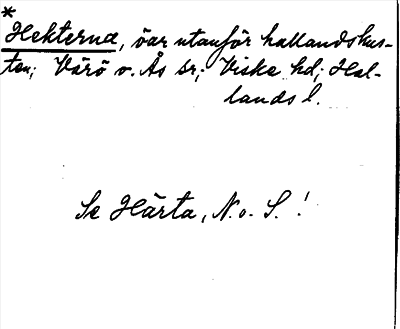 *
Hekterna, öar utanför hallandskus-
ten; Värö o. Ås sr; Viske hd; Hal-
lands l.
Se Härta, N. o. S. !